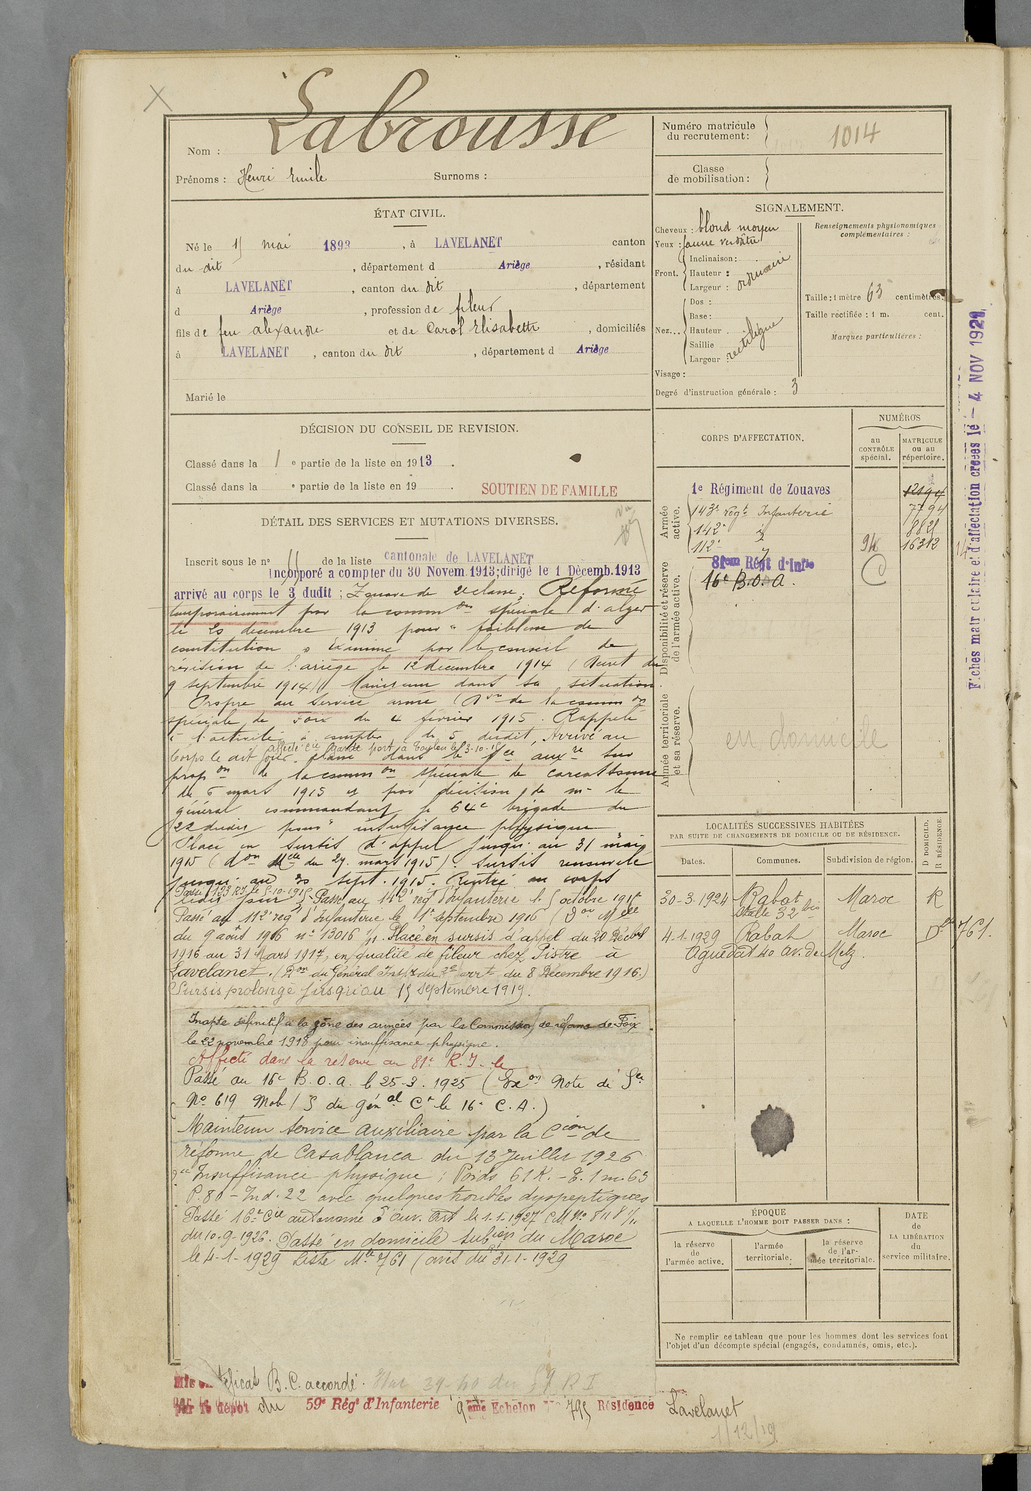 Labrousse
Nom :
Prénoms : Henri Emile Surnoms :
Numéro matricule du recrutement : 1014
Classe de mobilisation :
ÉTAT CIVIL.
Né le 15 mai 1893, à LAVELANET canton
du dit, département d Ariège, résidant
à LAVELANET, canton du dit, département
d Ariège, profession de fileur
fils de feu Alexandre et de Carol Elisabeth, domiciliés
à LAVELANET, canton du dit, département d Ariège
Marié le
SIGNALEMENT.
Cheveux : blond moyen
Yeux : jaune verdâtre
Front. Inclinaison :
Hauteur : ordinaire
Largeur :
Nez... Dos :
Base :
Hauteur rectiligne
Saillie
Largeur
Visage :
Degré d'instruction générale : 3
Renseignements physionomiques complémentaires :
Taille : 1 mètre 63 centimètres.
Taille rectifiée : 1 m. cent.
Marques particulières :
DÉCISION DU CONSEIL DE REVISION.
Classé dans la 1e partie de la liste en 1913.
Classé dans la e partie de la liste en 19 .
SOUTIEN DE FAMILLE
DÉTAIL DES SERVICES ET MUTATIONS DIVERSES.
Inscrit sous le n° 11 de la liste cantonale de LAVELANET
incorporé a compter du 30 Novem. 1913; dirigé le 1 Décemb. 1913
arrivé au corps le 3 dudit ; Zouave de 2e classe. Réformé
temporairement par la common spéciale d'alger
le 20 décembre 1913 pour "faiblesse de
constitution". Examiné par le conseil de
révision de l'ariège le 12 décembre 1914 (Décret du
9 septembre 1914). Maintenu dans sa situation.
Propre au service armé (Don de la common
spéciale de Foix du 4 février 1915. Rappelé
à l'activité à compter du 5 dudit, Arrivé au
Corps le dit jour. placé dans le sce auxre sur
affecté Cie
propon de la common spéciale de carcassonne
du 5 mars 1915 et par décision de mr le
général commandant la 64e brigade du
22 dudit pour "insuffisance physique
Placé en sursis d'appel jusqu'au 31 mai
1915 (Don Mlle du 27 mars 1915). Sursis renouvelé
jusqu'au 30 sept. 1915. Rentré au corps
ledit jour. Passé au 142e rég d'Infanterie le 5 octobre 1915
Passé au 112e rég d'Infanterie le 1er septembre 1916 (Don Mlle
du 9 août 1916 n° 13016 1/1. Placé en sursis d'appel du 20 Décbre
1916 au 31 Mars 1917, en qualité de fileur chez Pistre à
Lavelanet. (Don du Général du 8 Décembre 1916.)
Sursis prolongé jusqu'au 15 septembre 1919.
Inapte définitif à la zône des armées par la Commission de réforme de Foix
le 22 novembre 1918 pour insuffisance physique.
Affecté dans la réserve au 81e R.I. le
Passé au 16e B.O.A. le 25-3. 1925 (Exon Note de Sce
N° 619 Mob/S du Génal Ct le 16e C.A.)
Maintenu service auxiliaire par la Cion de
réforme de Casablanca du 13 Juillet 1926
"Insuffisance physique : Poids 61 K. - T. 1m.63
P. 80 - Ind. 22 avec quelques troubles dyspeptiques
Passé 16e Cie autonome d'ouv. Art le 1.1.1927
du 10.9.1926. Passé en domicile subion du Maroc
le 4-1-1929 Liste Mle 761 (avis du 31.1-1929
CORPS D'AFFECTATION.
NUMÉROS
au CONTRÔLE spécial.
MATRICULE ou au répertoire.
Armée active.
1e Régiment de Zouaves
143e Régt Infanterie 7794
142e 8821
112e 16312
81eme Régt d'Infie
16e B.O.A.
Disponibilité et réserve de l'armée active.
Armée territoriale et sa réserve.
en domicile
LOCALITÉS SUCCESSIVES HABITÉES
PAR SUITE DE CHANGEMENTS DE DOMICILE OU DE RÉSIDENCE.
D DOMICILE. R RÉSIDENCE.
Dates. Communes. Subdivision de région.
30-3.1924 Rabat Maroc R
4.1.1929 Rabat Maroc D 761.
Aguedal 40 av. de Metz.
ÉPOQUE
A LAQUELLE L'HOMME DOIT PASSER DANS :
la réserve de l'armée active.
l'armée territoriale.
la réserve de l'armée territoriale.
DATE DE LA LIBÉRATION du service militaire.
Ne remplir ce tableau que pour les hommes dont les services font
l'objet d'un décompte spécial (engagés, condamnés, omis, etc.).
Fiches matriculaire et d'affectation créées le - 4 NOV 1921
B.C. accordé.
par le dépôt du 59e Rég' d'Infanterie 9ème Echelon N° 795 Résidence Lavelanet
1/12/19